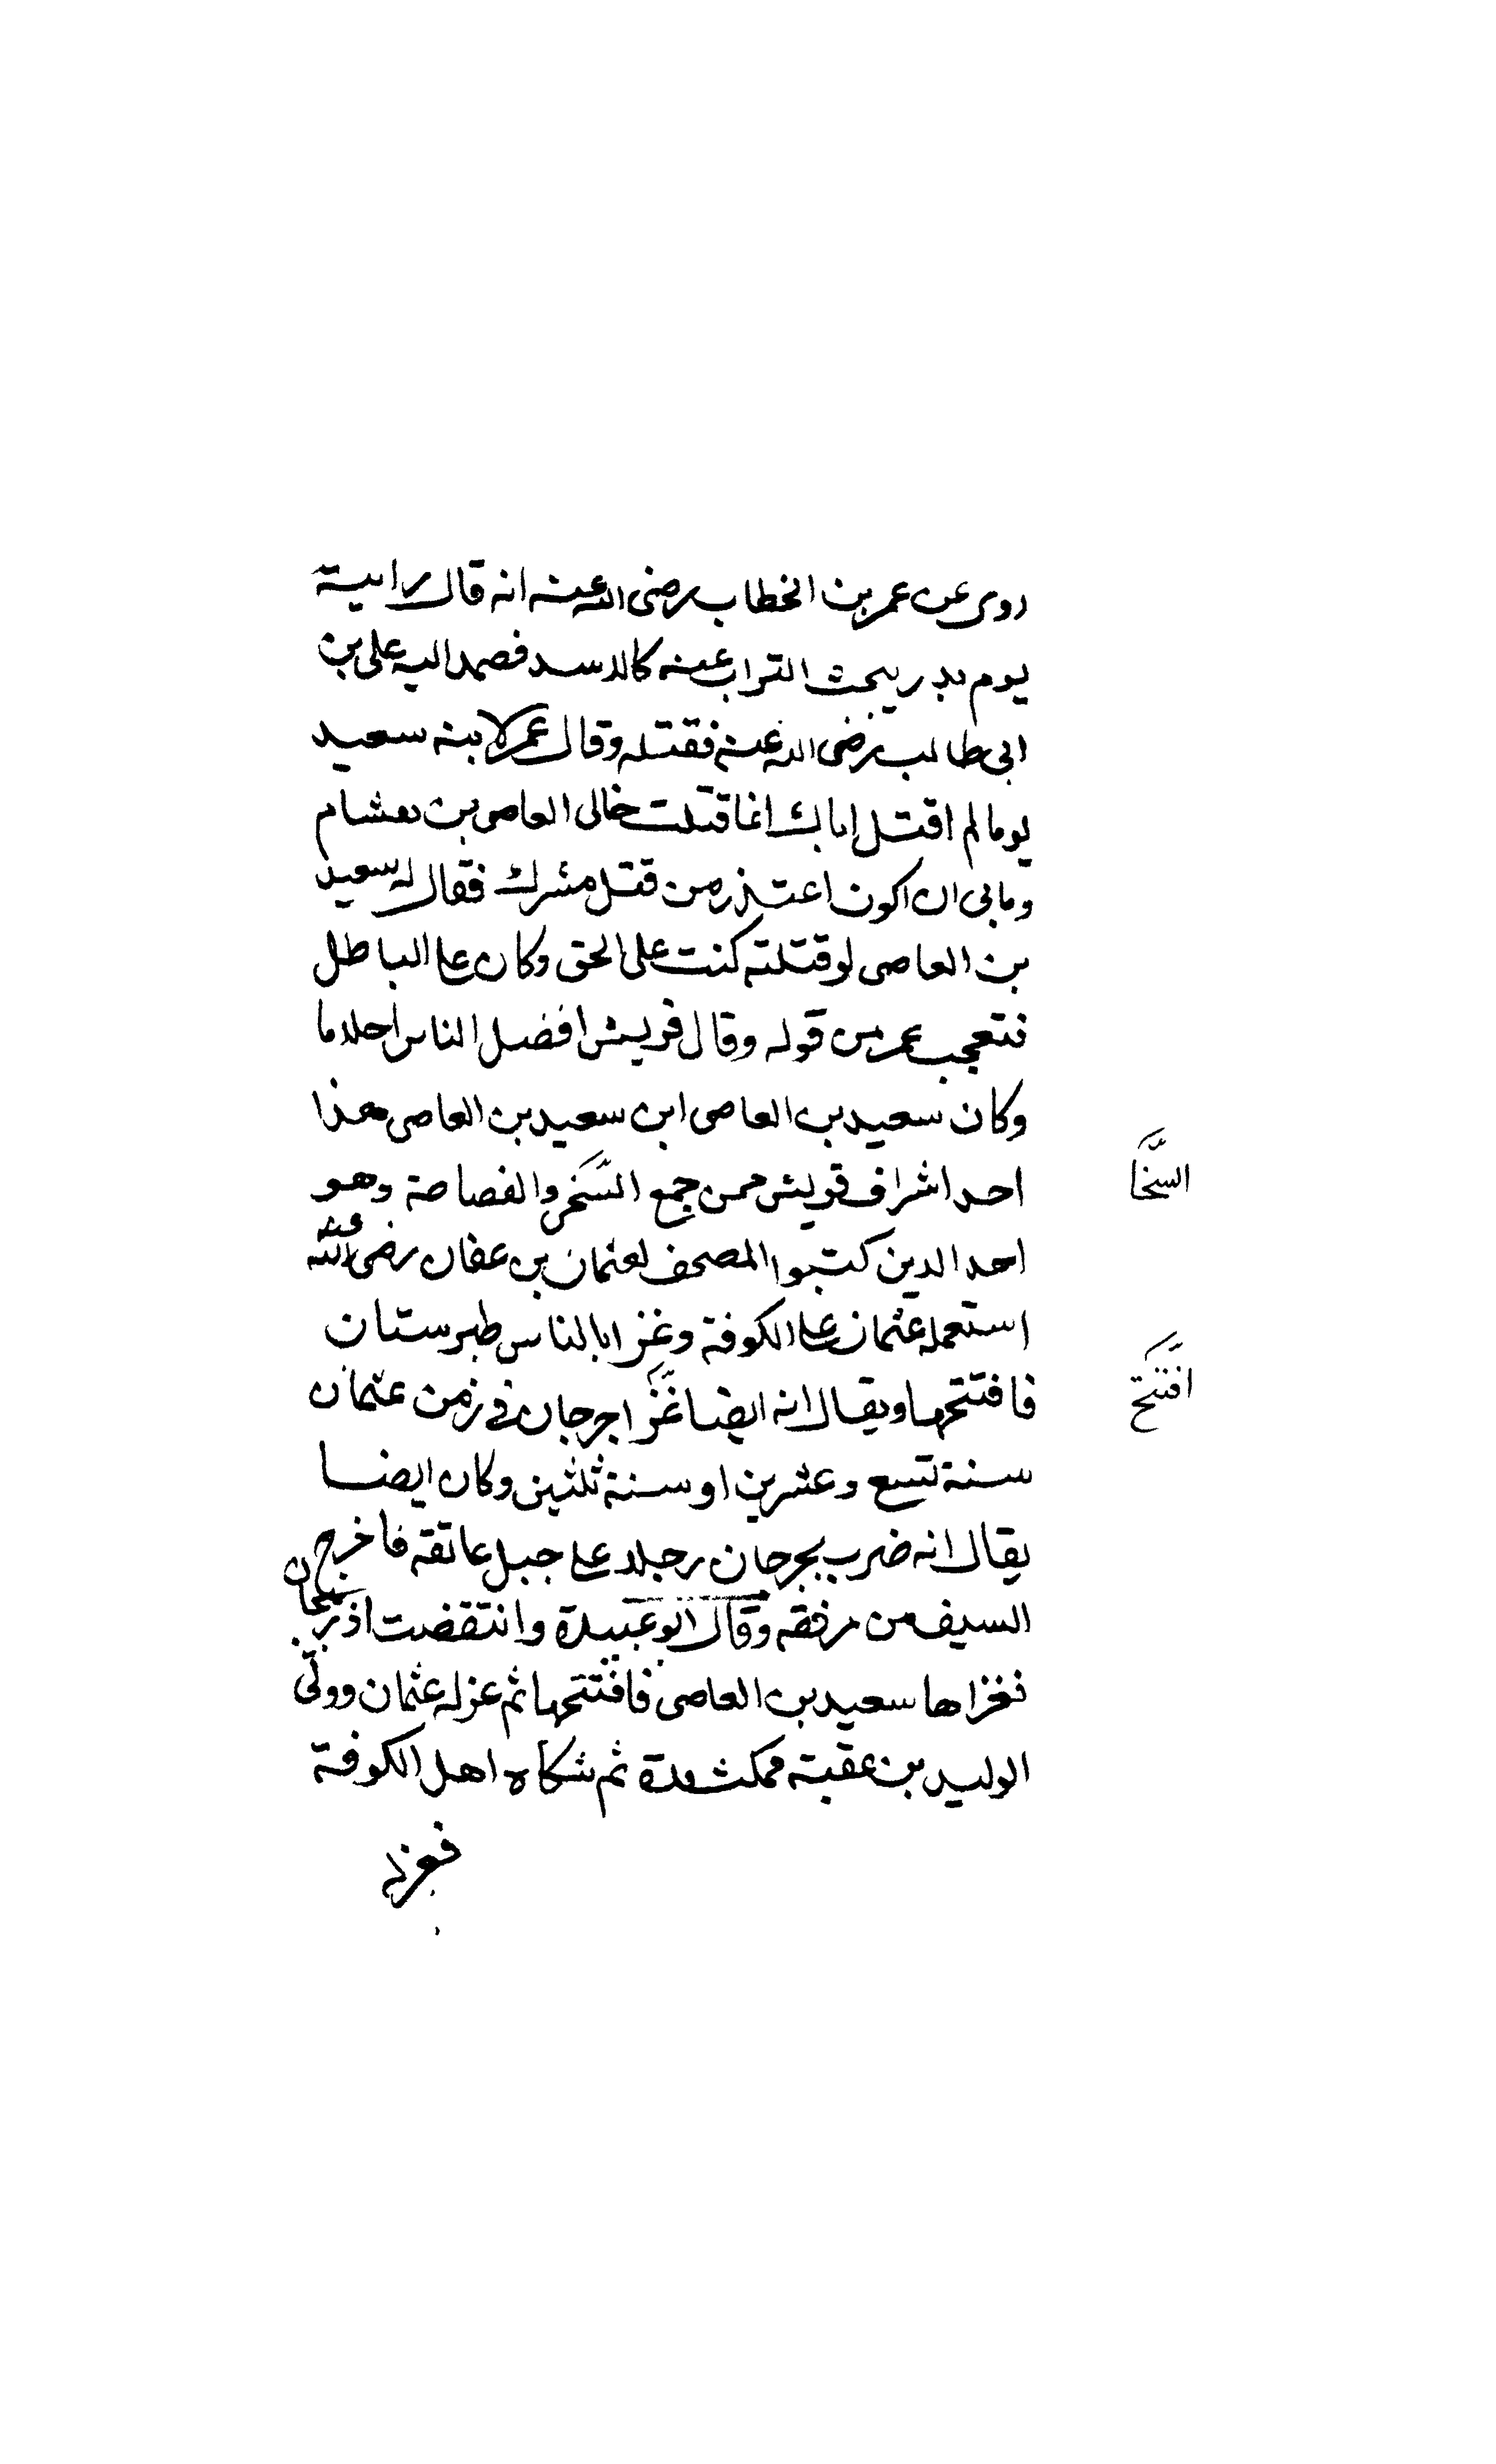 روى عن عمر بن الخطاب رضى الله عنه انه قال رايته
يوم بدر يبحث التراب عنه كالاسد فصمد اليه على بن
ابى طالب رضى الله عنه فقتله وقال عمر لابنه سعيد
يوما لم اقتل اباك انما قتلت خالى العاصى بن هشام
وما بى ان اكون اعتذر من قتل مشرك فقال له سعيد
بن العاصى لو قتلته كنت على الحق وكان على الباطل
فتعجب عمر من قوله وقال قريش افضل الناس احلاما
وكان سعيد بن العاصى ابن سعيد بن العاصى هذا
احد اشراف قريش ممن جمع السَّخر والفصاحة وهو
السَّخا
احد الذين كتبوا المصحف لعثمان بن عفان رضى الله عنه
استعمله عثمان على الكوفة وغزا بالناس طبرستان
فافتتحها ويقال انه ايضا غزا جرجان في زمن عثمان
افتتح
سنة تسع وعشرين او سنة ثلثين وكان ايضا
يقال انه ضرب بجرجان رجلا على حبل عاتقه فاخرج
السيف من مرفقه وقال ابو عبيدة وانتقضت اذربيجان
فغزاها سعيد بن العاصى فافتتحها ثم عزله عثمان وولى
الوليد بن عقبة فمكث مدة ثم شكاه اهل الكوفة
فعزله